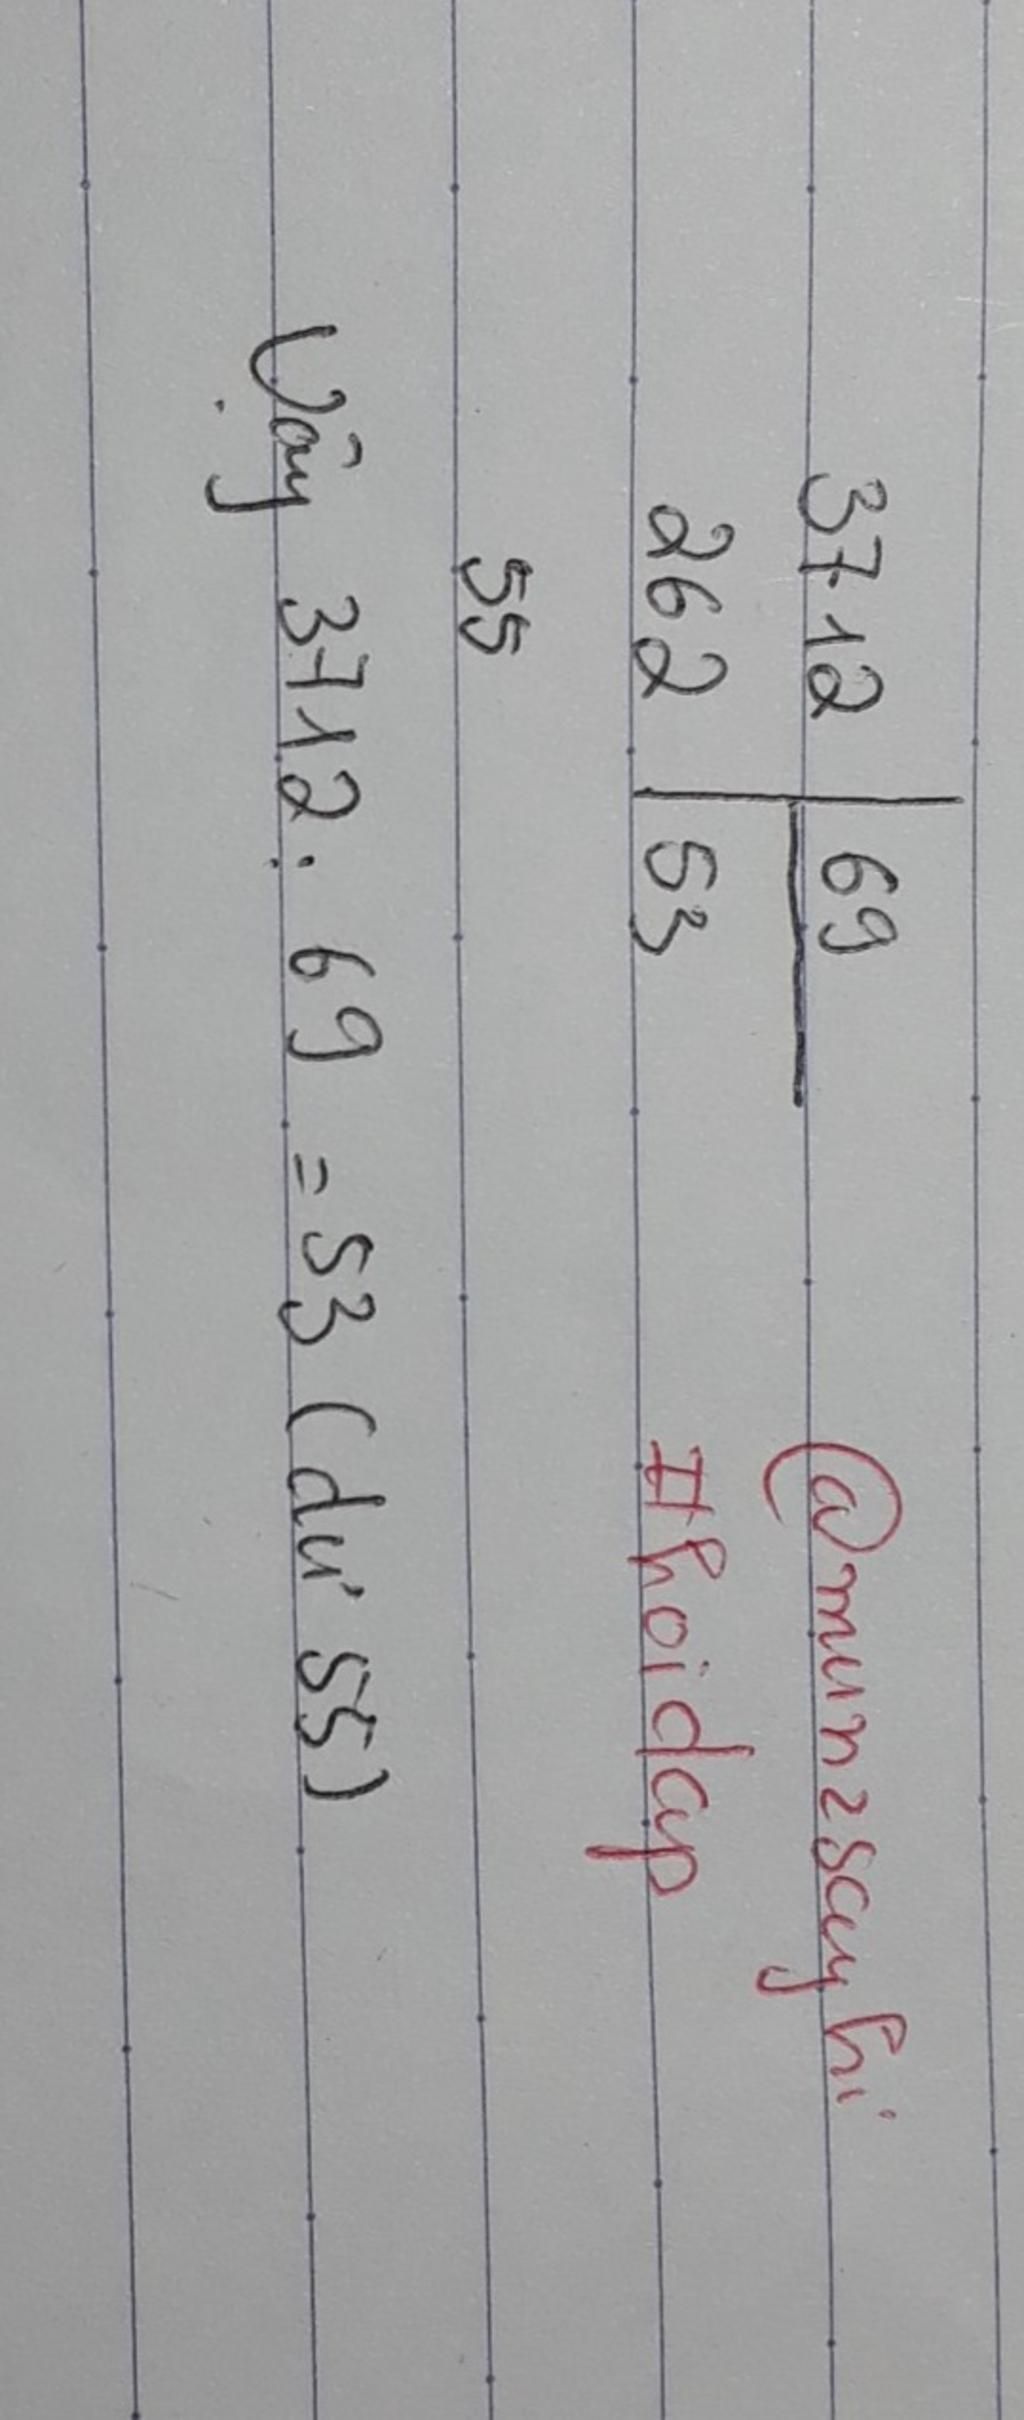 3712 69 @mun2sayhi
262 53 #hoidap
55
Vậy 3712 : 69 = 53 (dư 55)